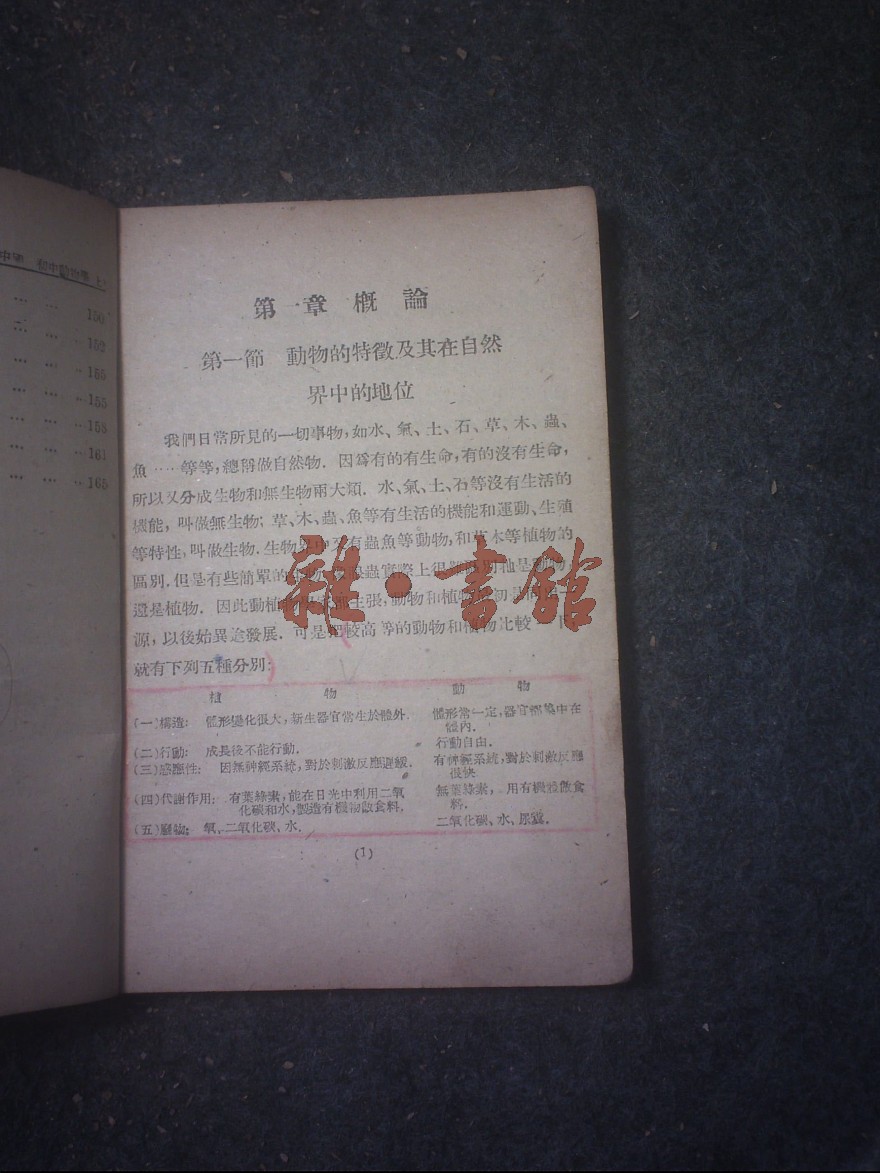 初中動物學 上
150
152
155
155
158
161
165
第一章 概論
第一節 動物的特徵及其在自然
界中的地位
我們日常所見的一切事物,如水、氣、土、石、草、木、蟲、
魚……等等,總稱做自然物. 因爲有的有生命,有的沒有生命,
所以又分成生物和無生物兩大類. 水、氣、土、石等沒有生活的
機能, 叫做無生物; 草、木、蟲、魚等有生活的機能和運動、生殖
等特性, 叫做生物. 生物界中又有蟲魚等動物, 和草木等植物的
區別. 但是有些簡單的生物, 蟲實際上很難 別 是動物
還是植物. 因此動植物 主張, 動物和植物 初是同
源, 以後始異途發展. 可是把較高等的動物和植物比較一下
就有下列五種分別:
植 物 動 物
(一)構造: 體形變化很大, 新生器官常生於體外. 體形常一定, 器官都集中在
體內.
(二)行動: 成長後不能行動. 行動自由.
(三)感應性: 因無神經系統, 對於刺激反應遲緩. 有神經系統, 對於刺激反應
很快
(四)代謝作用: 有葉綠素, 能在日光中利用二氧 無葉綠素, 用有機體做食
化碳和水, 製造有機物做食料. 料.
(五)廢物: 氧, 二氧化碳、水. 二氧化碳、水、尿
(1)
雜·書館